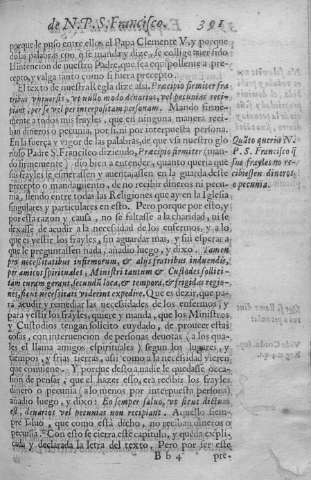 de N. P. S. Francisco. 391
porque le puso entre ellos el Papa Clemente V, y porque
de las palabras con que se manda y dize, se collige auer sido
la intencion de nuestro Padre, que sea equipollente a pre-
cepto, y valga tanto como si fuera precepto.
El texto de nuestra Regla dize assi. Præcipio firmiter fra-
tribus vniuersis, vt nullo modo denarios, vel pecuniam reci-
piant, per se vel per interpositam personam. Mando firme-
mente a todos mis frayles, que en ninguna manera reci-
ban dineros o pecunia, por si, ni por interpuesta persona.
En la fuerça y vigor de las palabras, de que vsa nuestro glo-
rioso Padre S. Francisco diziendo, Præcipio firmiter (man-
do firmemente) dio bien a entender, quanto queria que
sus frayles se esmerassen y auentajassen en la guarda deste
precepto o mandamiento, de no recibir dineros ni pecu-
nia, siendo entre todas las Religiones que ay en la Iglesia
singulares y particulares en esto. Pero porque por esso, y
por esta razon y causa, no se faltasse a la charidad, ni se
dexasse de acudir a la necessidad de los enfermos, y a lo
que es vestir los frayles, sin aguardar mas, y sin esperar a
que le preguntassen nada, añadio luego, y dixo. Tamen
pro necessitatibus infirmorum, & alijs fratribus induendis,
per amicos spirituales, Ministri tantum & Custodes sollici-
tam curam gerant, secundũ loca, & tempora, & frigidas regio-
nes, sicut necessitati viderint expedire. Que es dezir, que pa-
ra acudir y remediar las necessidades de los enfermos, y
para vestir los frayles, quiere y manda, que los Ministros
y Custodios tengan solicito cuydado, de proueer estas
cosas, con interuencion de personas deuotas (a los qua-
les el llama amigos espirituales) segun los lugares, y
tiempos, y frias tierras, assi como a la necessidad vieren
que conuiene. Y porque desto a nadie le quedasse occa-
sion de pensar, que el hazer esso, era recibir los frayles
dinero o pecunia (a lo menos por interpuesta persona)
añadio luego, y dixo: Eo semper saluo, vt sicut dictum
est, denarios vel pecuniam non recipiant. Aquello siem-
pre saluo, que como está dicho, no reciban dineros o
pecunia. Con esto se cierra este capitulo, y queda expli-
cada y declarada la letra del texto. Pero por ser este
B b 4 pre-
Quãto queria N.
P. S. Francisco q̃
sus frayles no re-
cibiessen dineros,
o pecunia.